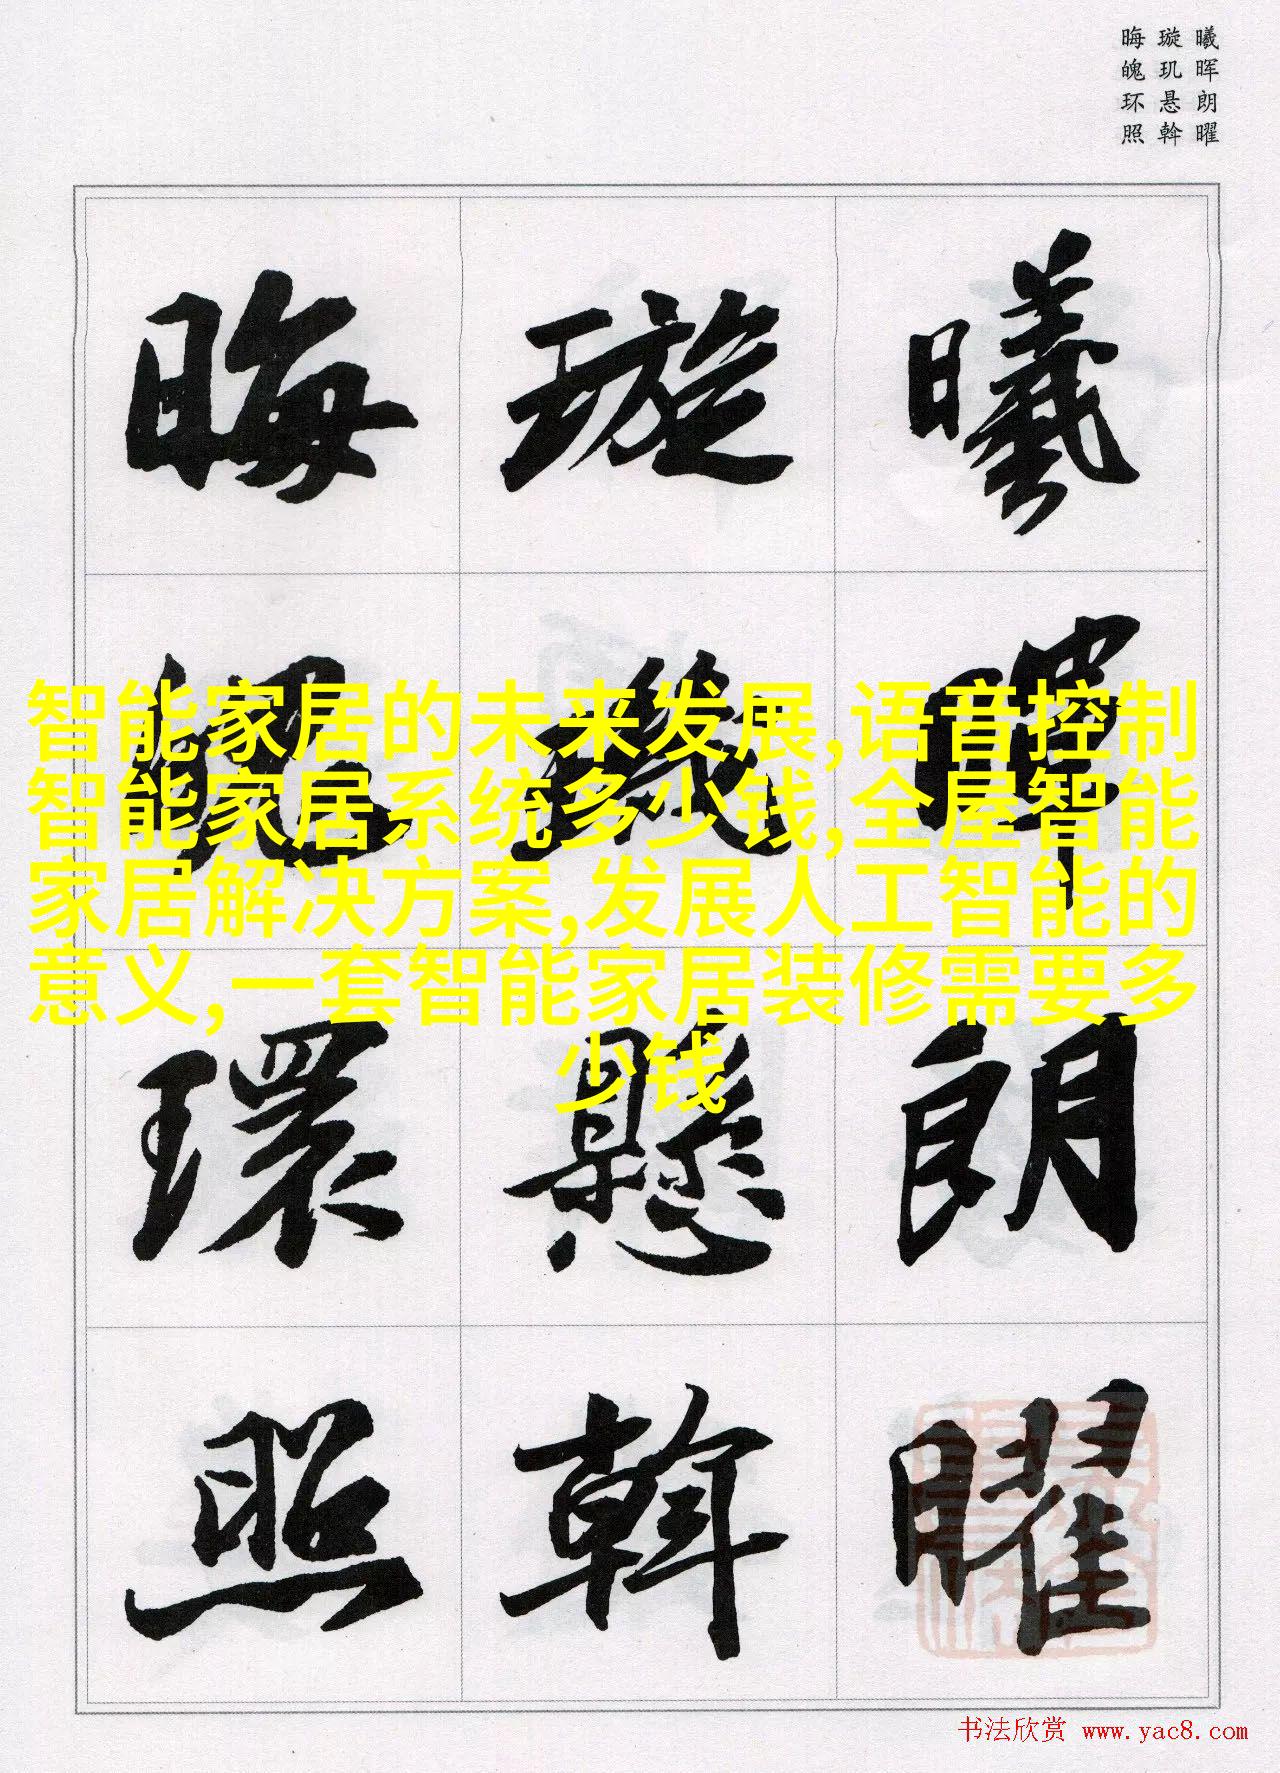 曦晖朗曜
璇玑悬斡
晦魄环照
曦暉朗曜
璇璣懸斡
晦魄環照
智能家居的未来发展,语音控制
智能家居系统多少钱,全屋智能
家居解决方案,发展人工智能的
意义,一套智能家居装修需要多
少钱
书法欣赏 www.yac8.com